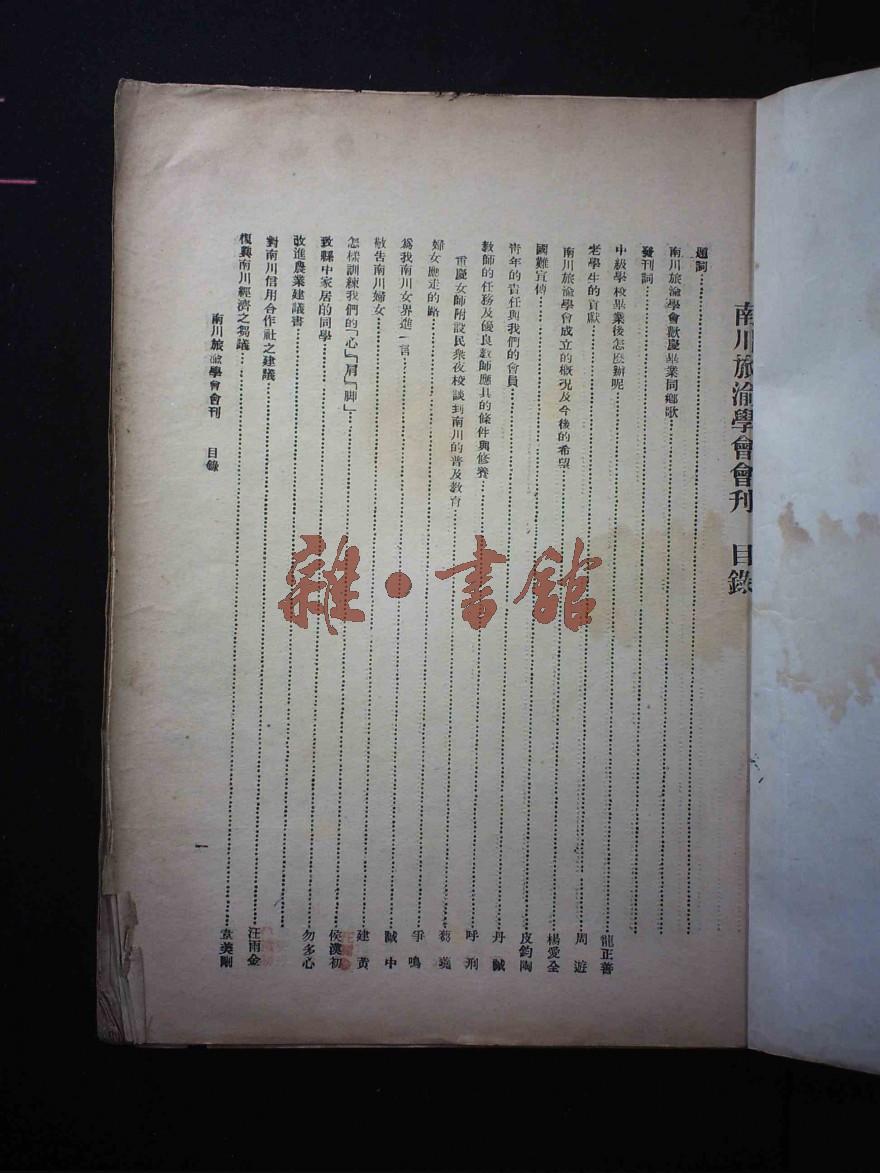 南川旅渝學會會刊　目錄
題詞
南川旅渝學會歡慶畢業同鄉歌
發刊詞
中級學校畢業後怎麼辦呢 龍正善
老學生的貢獻 周遊
南川旅渝學會成立的概况及今後的希望 楊愛全
國難宣傳 皮鈞陶
青年的責任與我們的會員 丹誠
教師的任務及優良教師應具的條件與修養 呼刑
重慶女師附設民衆夜校談到南川的普及教育
婦女應走的路 爭鳴
爲我南川女界進一言 誠中
敬告南川婦女 建黃
怎樣訓練我們的「心」「肩」「脚」 侯漢初
致縣中家居的同學 勿多心
改進農業建議書
對南川信用合作社之建議 汪雨金
復興南川經濟之芻議 韋美剛
南川旅渝學會會刊　目錄
一
雜·書館